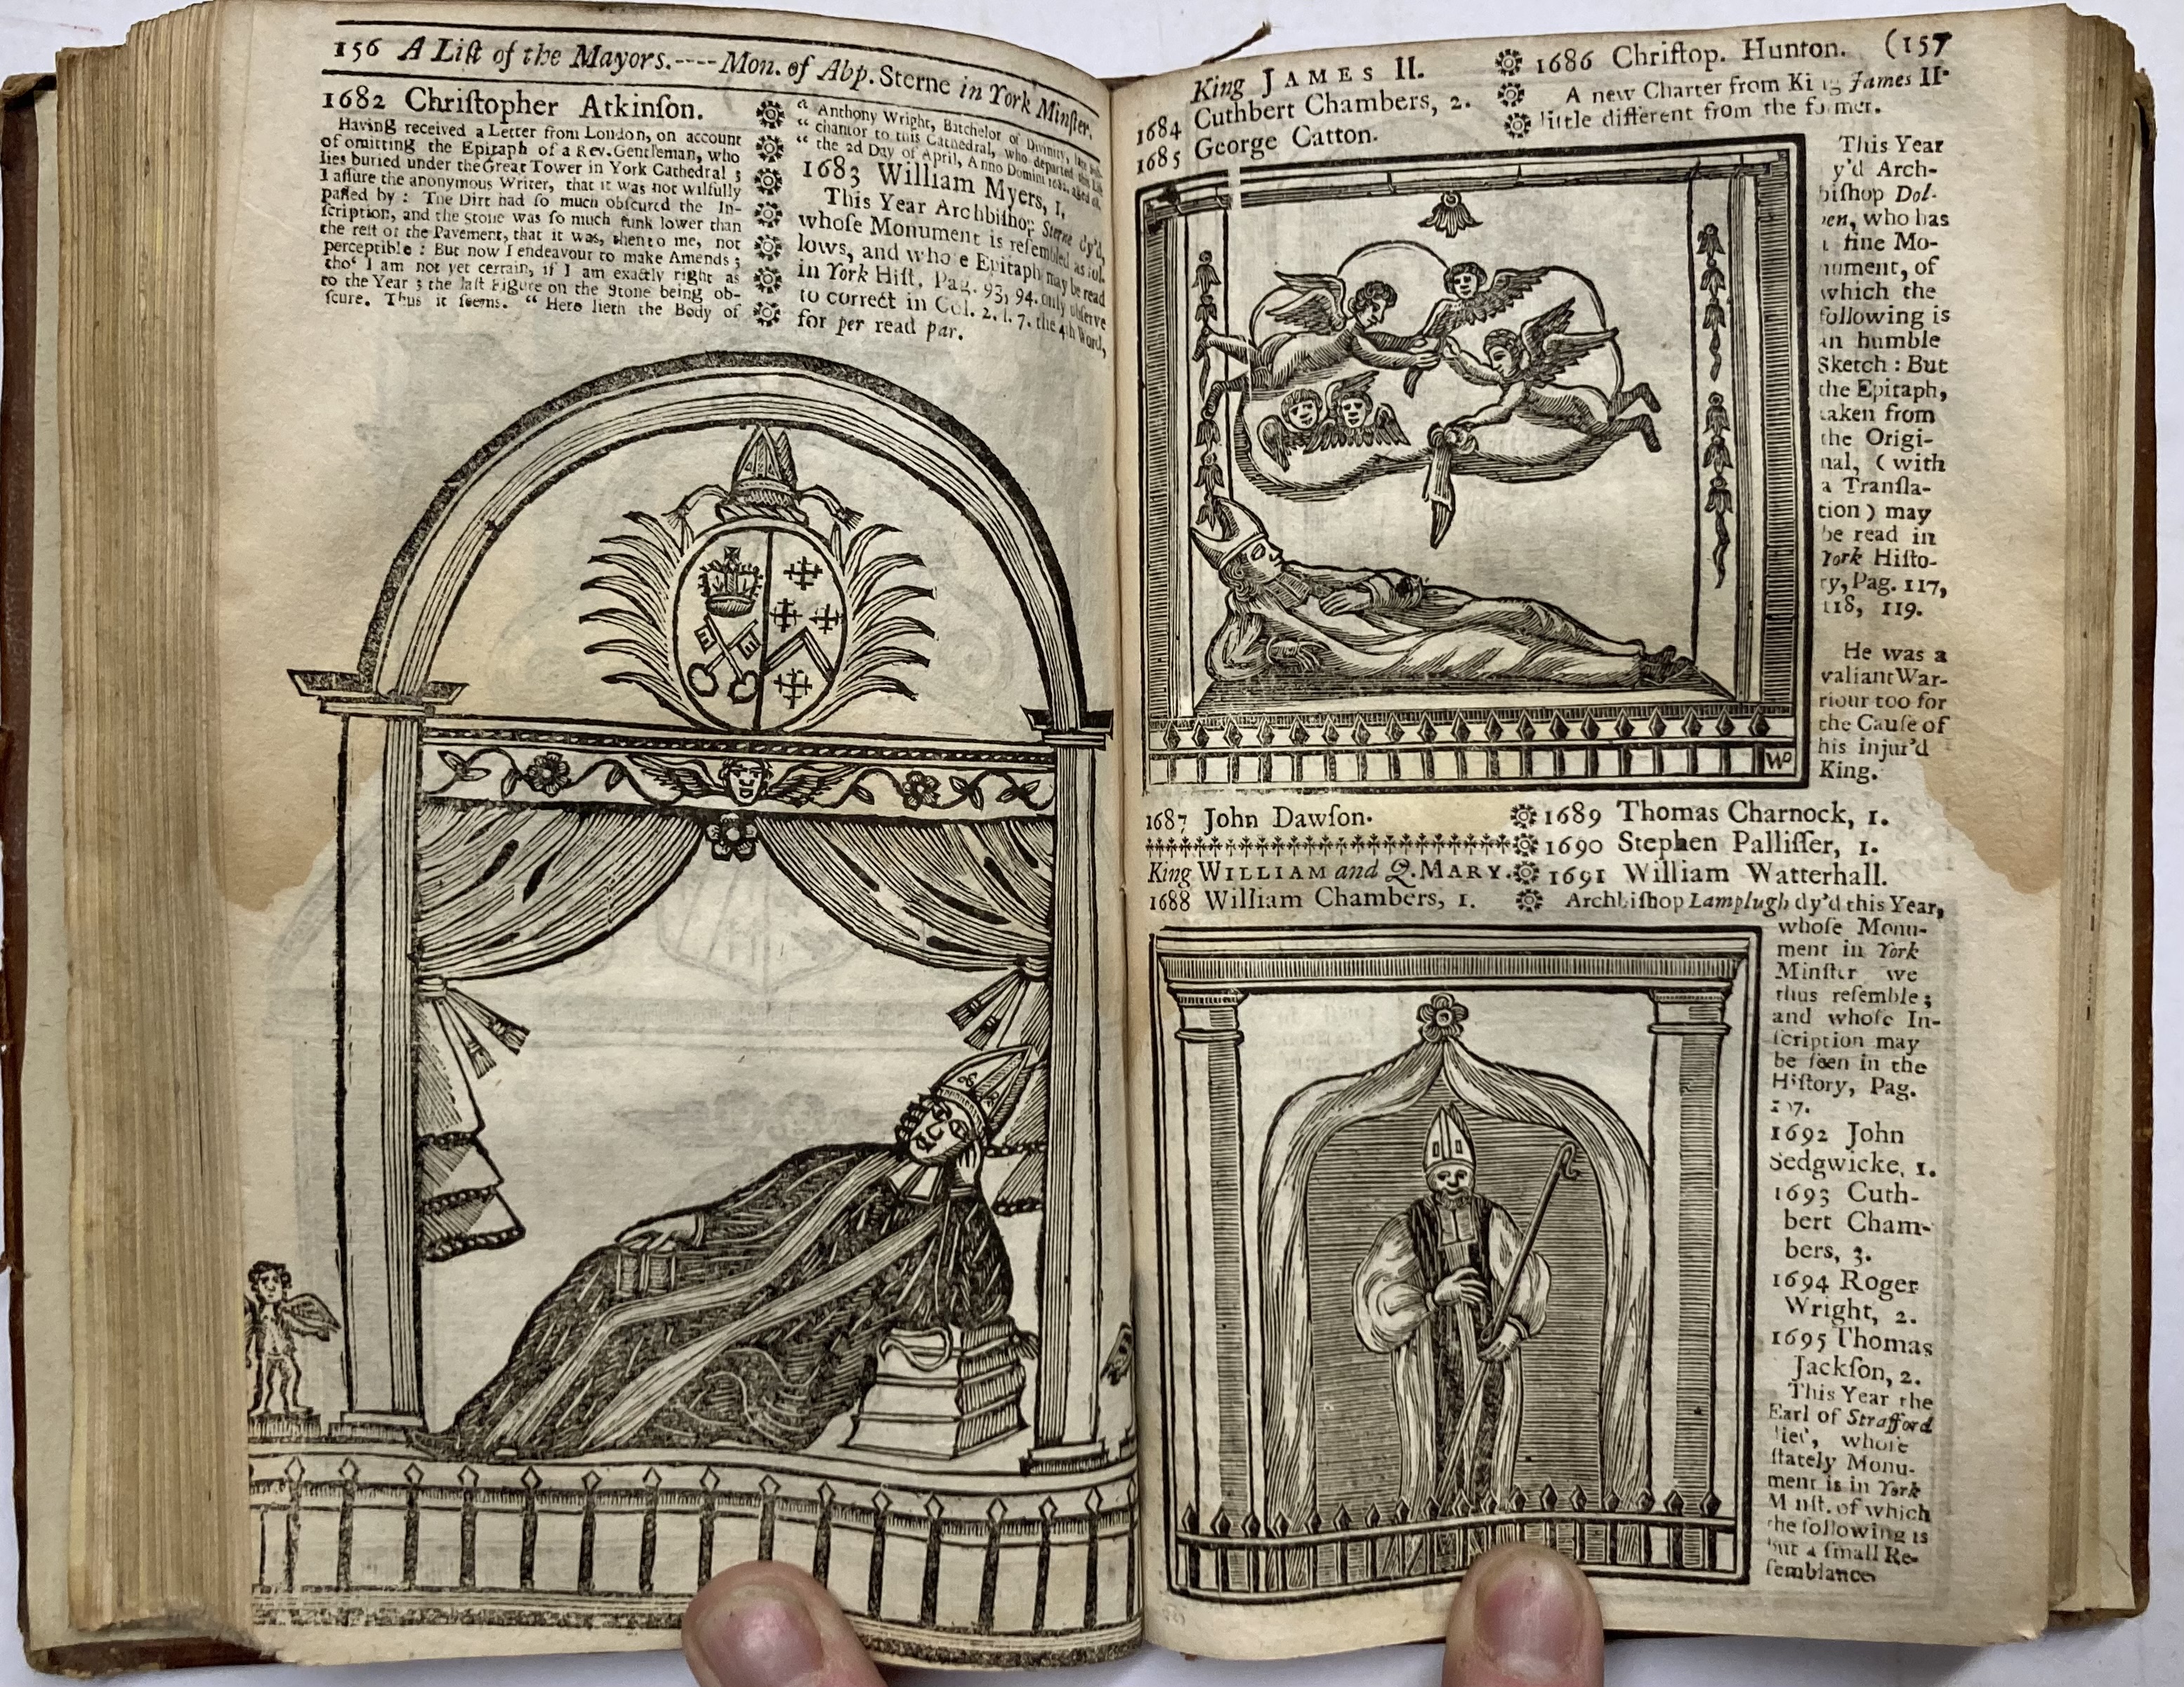 156 A Liſt of the Mayors.----Mon. of Abp. Sterne in York Minſter.
1682 Chriſtopher Atkinſon.
Having received a Letter from London, on account
of omitting the Epitaph of a Rev. Gentleman, who
lies buried under the Great Tower in York Cathedral;
I aſſure the anonymous Writer, that it was not wilfully
paſſed by: The Dirt had ſo much obſcured the In-
ſcription, and the Stone was ſo much ſunk lower than
the reſt of the Pavement, that it was, then to me, not
perceptible: But now I endeavour to make Amends;
tho' I am not yet certain, if I am exactly right as
to the Year; the laſt Figure on the Stone being ob-
ſcure. Thus it ſeems. “ Here lieth the Body of
“ Anthony Wright, Batchelor of Divinity,
“ chantor to this Cathedral, who departed this Life
“ the 2d Day of April, Anno Domini 1682, aged
1683 William Myers, 1.
This Year Archbiſhop Sterne dy'd,
whoſe Monument is reſembled as fol-
lows, and whoſe Epitaph may be read
in York Hiſt. Pag. 93, 94. only obſerve
to correct in Col. 2. l. 7. the 4th Word,
for per read par.
King JAMES II.
1684 Cuthbert Chambers, 2.
1685 George Catton.
1686 Chriſtop. Hunton. (157
A new Charter from King James II.
little different from the former.
This Year
dy'd Arch-
biſhop Dol-
ben, who has
a fine Mo-
nument, of
which the
following is
an humble
Sketch: But
the Epitaph,
taken from
the Origi-
nal, (with
a Tranſla-
tion) may
be read in
York Hiſto-
ry, Pag. 117,
118, 119.
He was a
valiant War-
riour too for
the Cauſe of
his injur'd
King.
WP
1687 John Dawſon.
King WILLIAM and Q. MARY.
1688 William Chambers, 1.
1689 Thomas Charnock, 1.
1690 Stephen Palliſſer, 1.
1691 William Watterhall.
Archbiſhop Lamplugh dy'd this Year,
whoſe Monu-
ment in York
Minſter we
thus reſemble;
and whoſe In-
ſcription may
be ſeen in the
Hiſtory, Pag.
1692 John
Sedgwicke, 1.
1693 Cuth-
bert Cham-
bers, 3.
1694 Roger
Wright, 2.
1695 Thomas
Jackſon, 2.
This Year the
Earl of Strafford
died, whoſe
ſtately Monu-
ment is in York
Minſt. of which
the following is
but a ſmall Re-
ſemblance